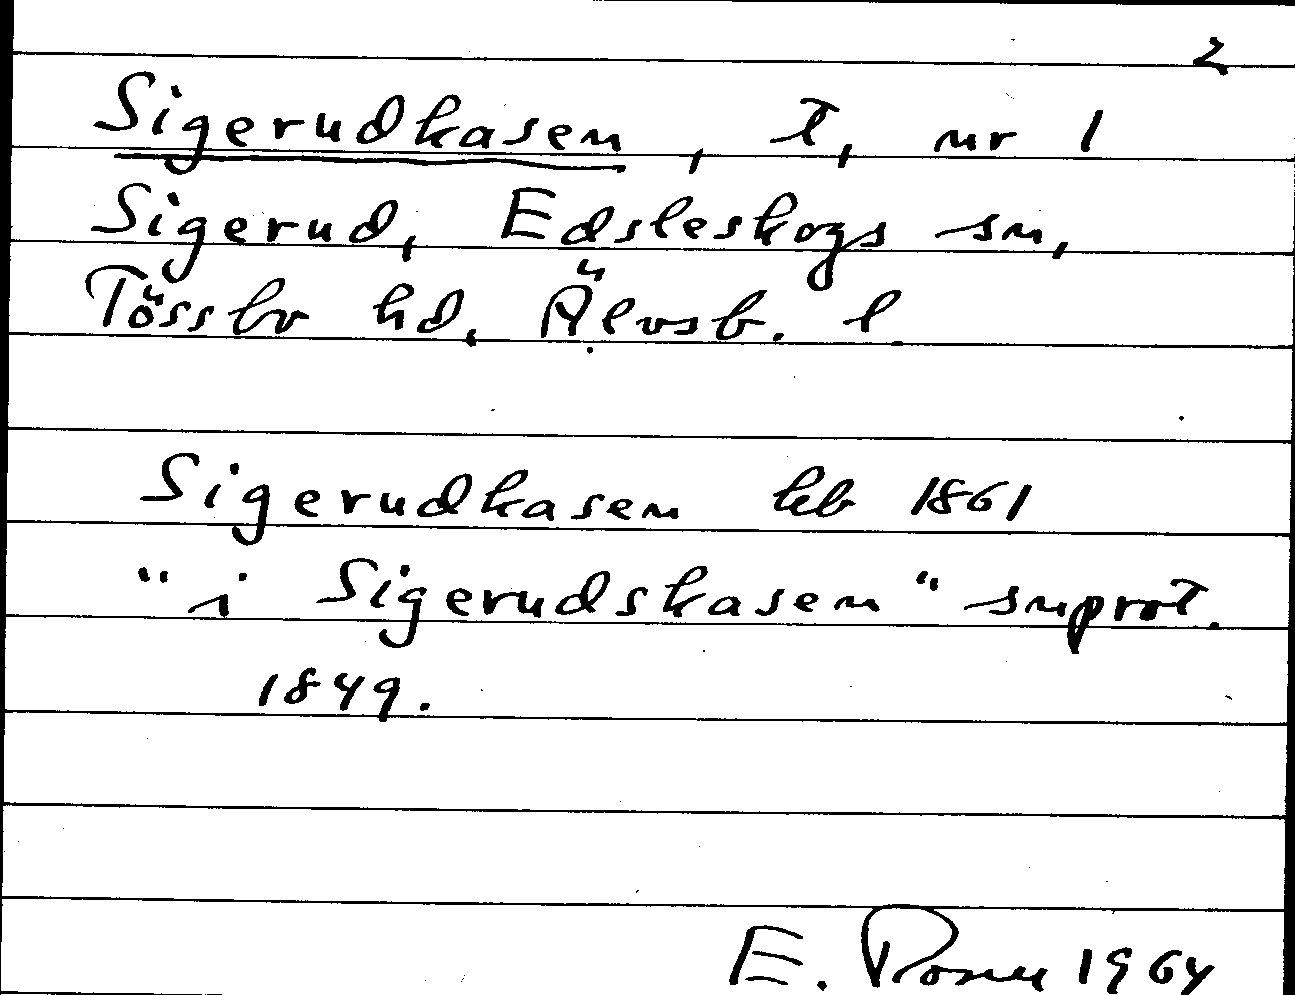 2
Sigerudkasen, T, nr 1
Sigerud, Edsleskogs sn,
Tössbo hd, Älvsb. l.
Sigerudkasen hb 1861
"i Sigerudskasen" snprot.
1849.
E. 1964